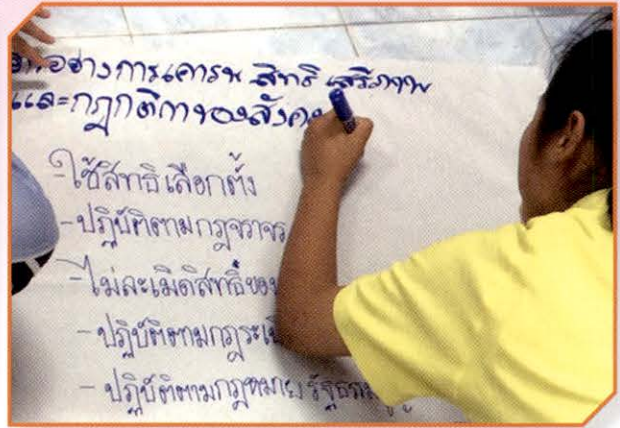 ตัวอย่างการเคารพ สิทธิ เสรีภาพ
และกฎกติกาของสังคม
-ใช้สิทธิเลือกตั้ง
-ปฏิบัติตามกฎจราจร
-ไม่ละเมิดสิทธิ์ของ
-ปฏิบัติตามกฎระเบี
-ปฏิบัติตามกฎหมายรัฐธรรมนูญ